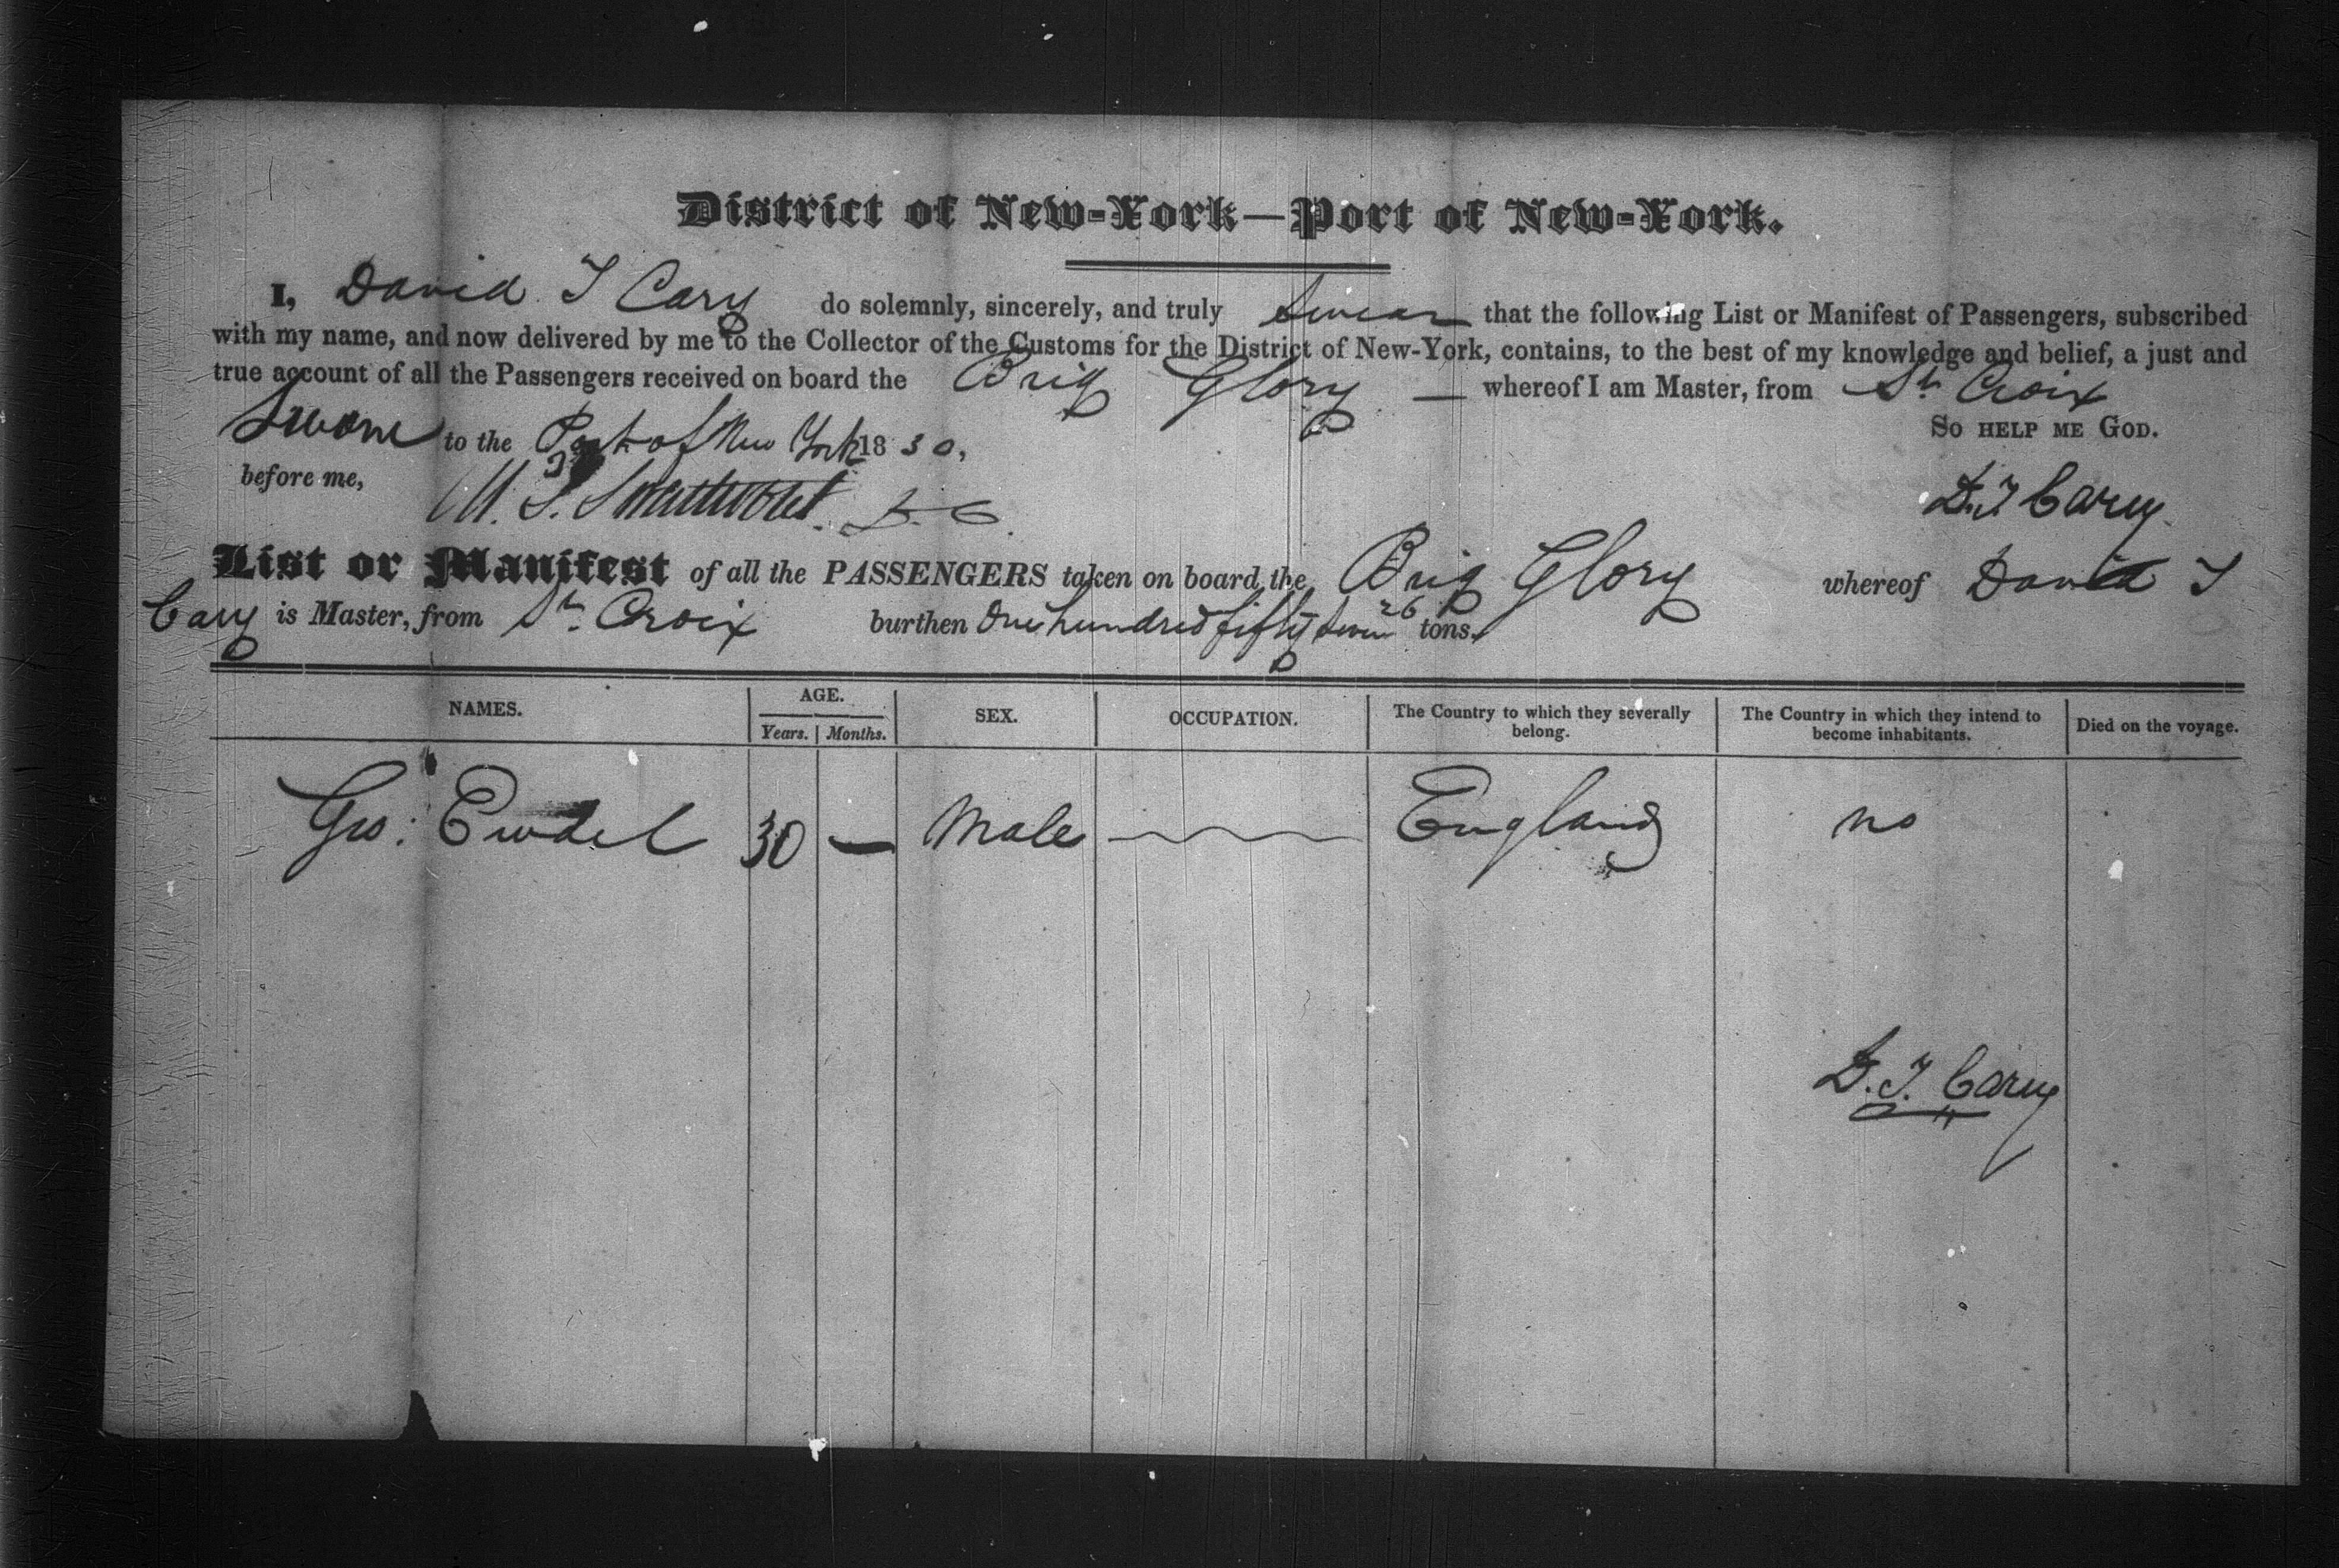 District of New-York—Port of New-York.
I, David T Cary do solemnly, sincerely, and truly Swear that the following List or Manifest of Passengers, subscribed
with my name, and now delivered by me to the Collector of the Customs for the District of New-York, contains, to the best of my knowledge and belief, a just and
true account of all the Passengers received on board the Brig Glory — whereof I am Master, from St. Croix
Sworn to the Port of New York 1830,
So help me God.
before me,
D.T. Cary
List or Manifest of all the PASSENGERS taken on board the Brig Glory whereof David T
Cary is Master, from St. Croix burthen One hundred fifty Seven 26 tons.
NAMES. AGE. Years. Months. SEX. OCCUPATION. The Country to which they severally belong. The Country in which they intend to become inhabitants. Died on the voyage.
Geo: 30 — Male England no
D.T. Cary